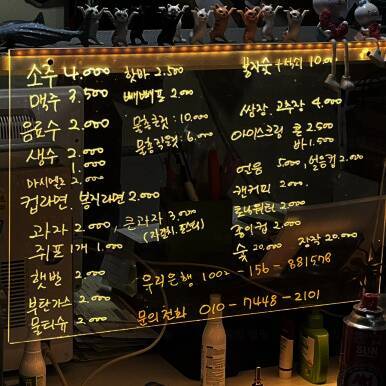 소주 4.000 핫바 2.500
맥주 3.500 빼빼로 2.000
음료수 2.000 물총 大 : 10.000
생수 2.000 물총 : 6.000
1.000
2.000
컵라면, 봉지라면 2.000
과자 2.000, 큰과자 3.000
쥐포 1개 1.000
햇반 2.000
부탄가스 2.000
물티슈 2.000
봉지숯 + 석쇠 10.000
쌈장, 고추장 4.000
아이스크림 콘 2.500
바 1.500
얼음 5.000, 얼음컵 2.000
캔커피 2.000
2.000
종이컵 2.000
숯 20.000 장작 20.000
우리은행 1002 - 156 - 881578
문의전화 010 - 7448 - 2101